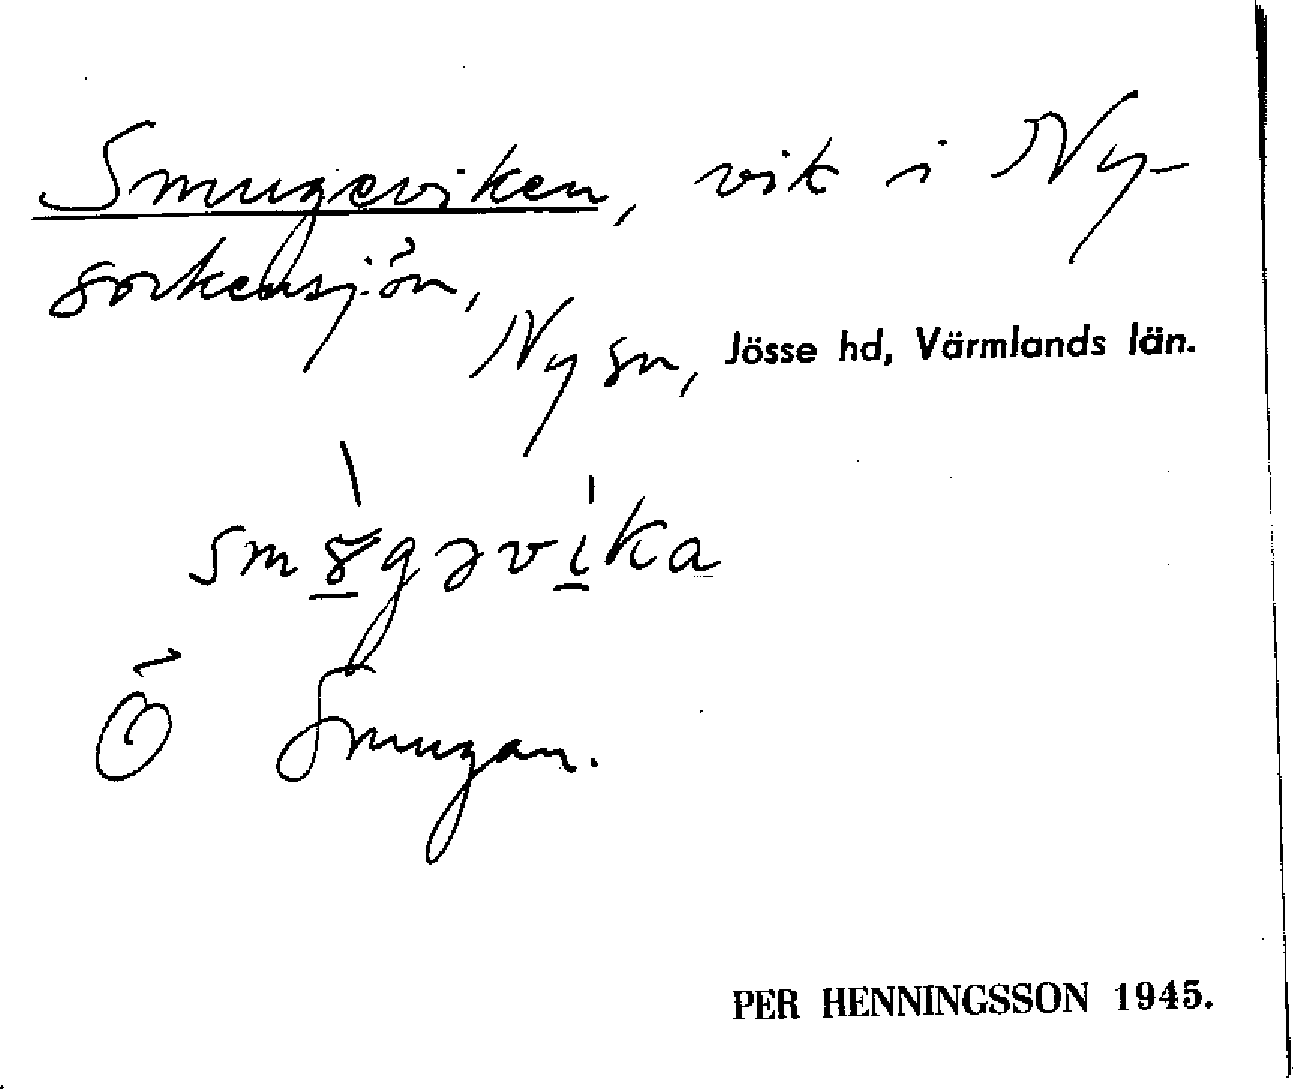 Smugeviken, vik i Ny-
sockensjön,
Ny sn, Jösse hd, Värmlands län.
Ö Smugan.
PER HENNINGSSON 1945.